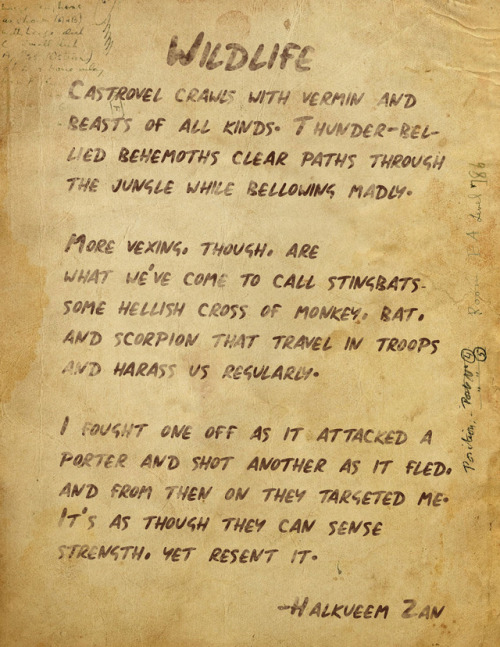 Wildlife
Castrovel crawls with vermin and
beasts of all kinds. Thunder-bel-
lied behemoths clear paths through
the jungle while bellowing madly.
More vexing, though, are
what we've come to call stingbats-
some hellish cross of monkey, bat,
and scorpion that travel in troops
and harass us regularly.
I fought one off as it attacked a
porter and shot another as it fled,
and from then on they targeted me.
It's as though they can sense
strength, yet resent it.
-Halkueem Zan
Level 786
Position